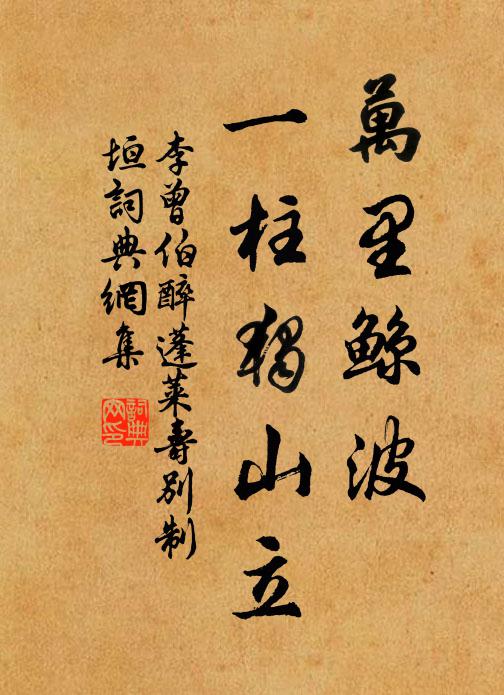 萬里鯨波
一柱獨山立
李曾伯醉蓬萊壽別制
垣詞典網集
詞典網印